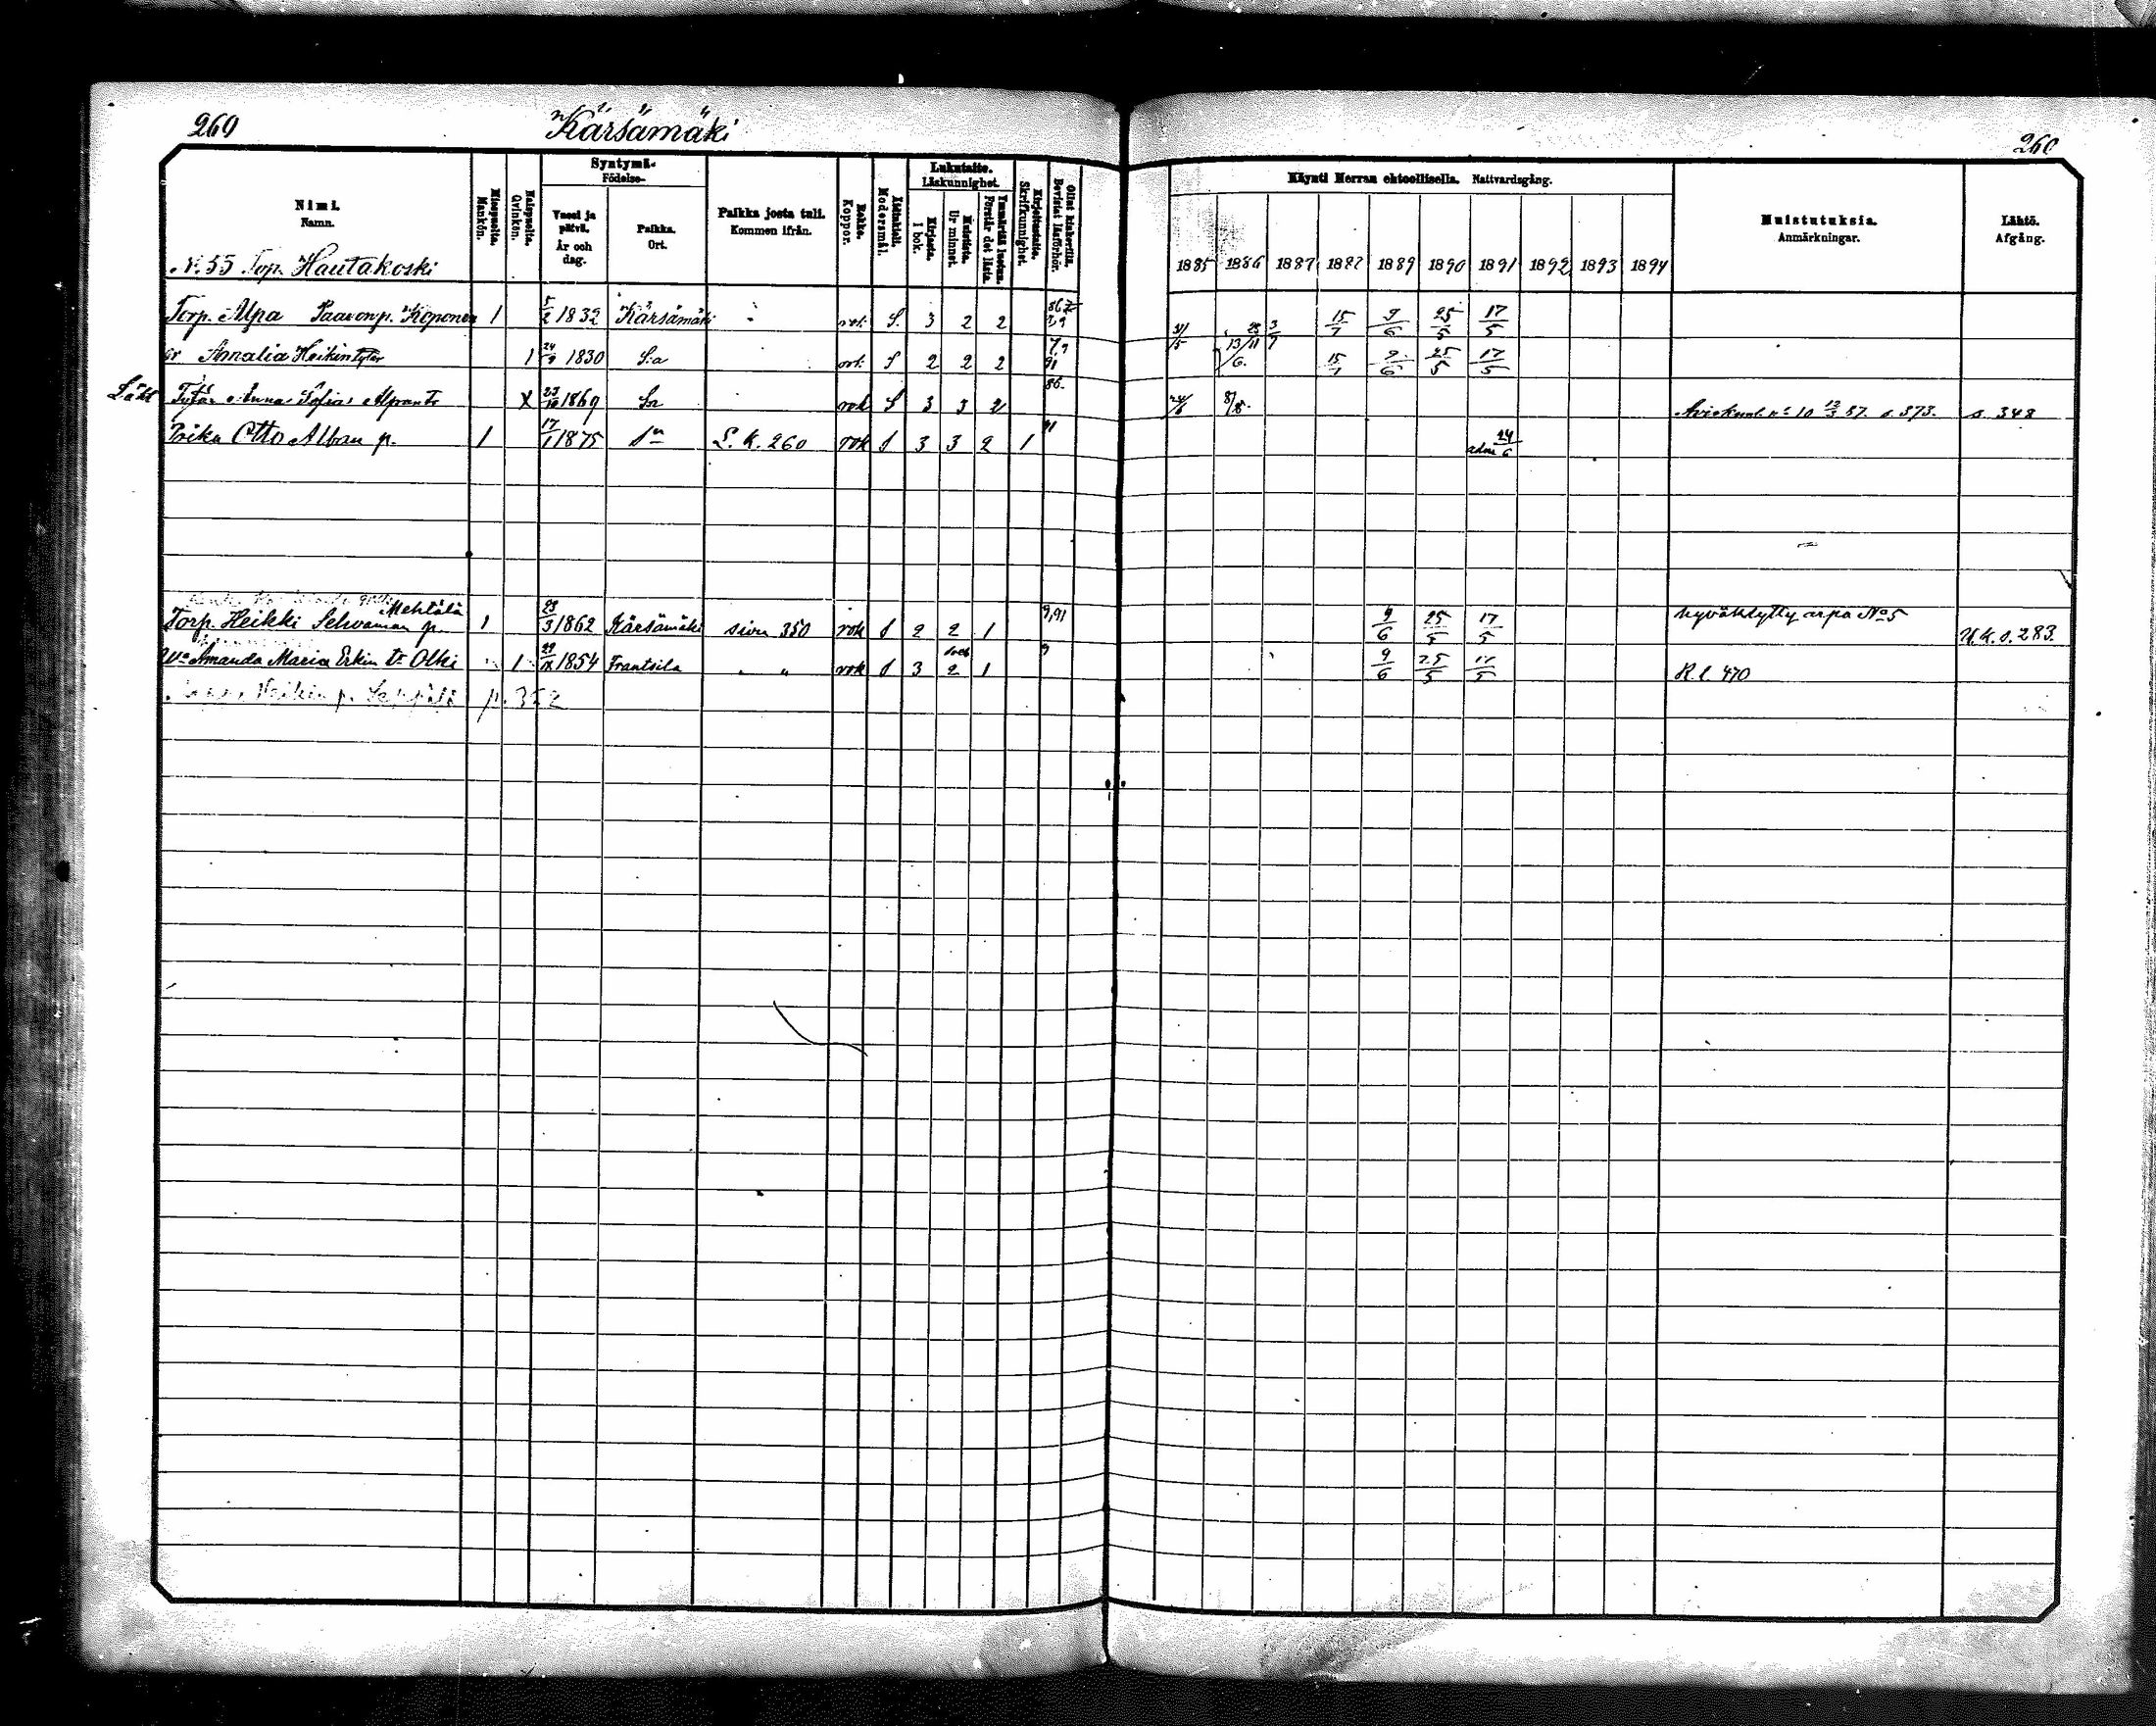 260
Kärsämäki
260
Nimi. Namn.
Miespuolta. Mankön.
Naispuolta. Qvinkön.
Syntymä- Födelse-
Vuosi ja päivä. År och dag.
Paikka. Ort.
Paikka josta tuli. Kommen ifrån.
Rokko. Koppor.
Äidinkieli. Modersmål.
Lukutaito. Läskunnighet.
Kirjasta. I bok.
Muistista. Ur minnet.
Ymmärtää luetun. Förstår det lästa.
Kirjoitustaito. Skrifkunnighet.
Ollut lukukerilla. Bevistat läsförhör.
Käynti Herran ehtoollisella. Nattvardsgång.
1885 1886 1887 1888 1889 1890 1891 1892 1893 1894
Muistutuksia. Anmärkningar.
Lähtö. Afgång.
N:55 Torp. Hautakoski
Torp. Alpa Paavonp. Koponen 1 5/2 1832 Kärsämäki rok. S. 3 2 2 31/5 3/7 15/7 9/6 25/5 17/5
Amalia Heikintytär 1 24/9 1830 S:a S 2 2 2 91 13/6 15/7 9/6 25/5 17/5
Tytär Anna Sofia X 23/10 1869 rok S 3 3 2 86. 24/6 8/8. No 10 12/3 87. s. 373. s. 348
Poika Otto Alban p. 1 17/1 1875 L.K. 260 rok S 3 3 2 1 91 adm 24/6
Mehtälä
Torp. Heikki p. 1 23/3 1862 Kärsämäki sivu 350 rok S 2 2 1 9,91 9/6 25/5 17/5 hyväksytty arpa No 5 s. 283.
Amanda Maria Erkin tr Olki 1 1854 Frantsila " " rok S 3 2 1 9 9/6 25/5 17/5 R.l. 470
Heikin p. Seppälä p. 352